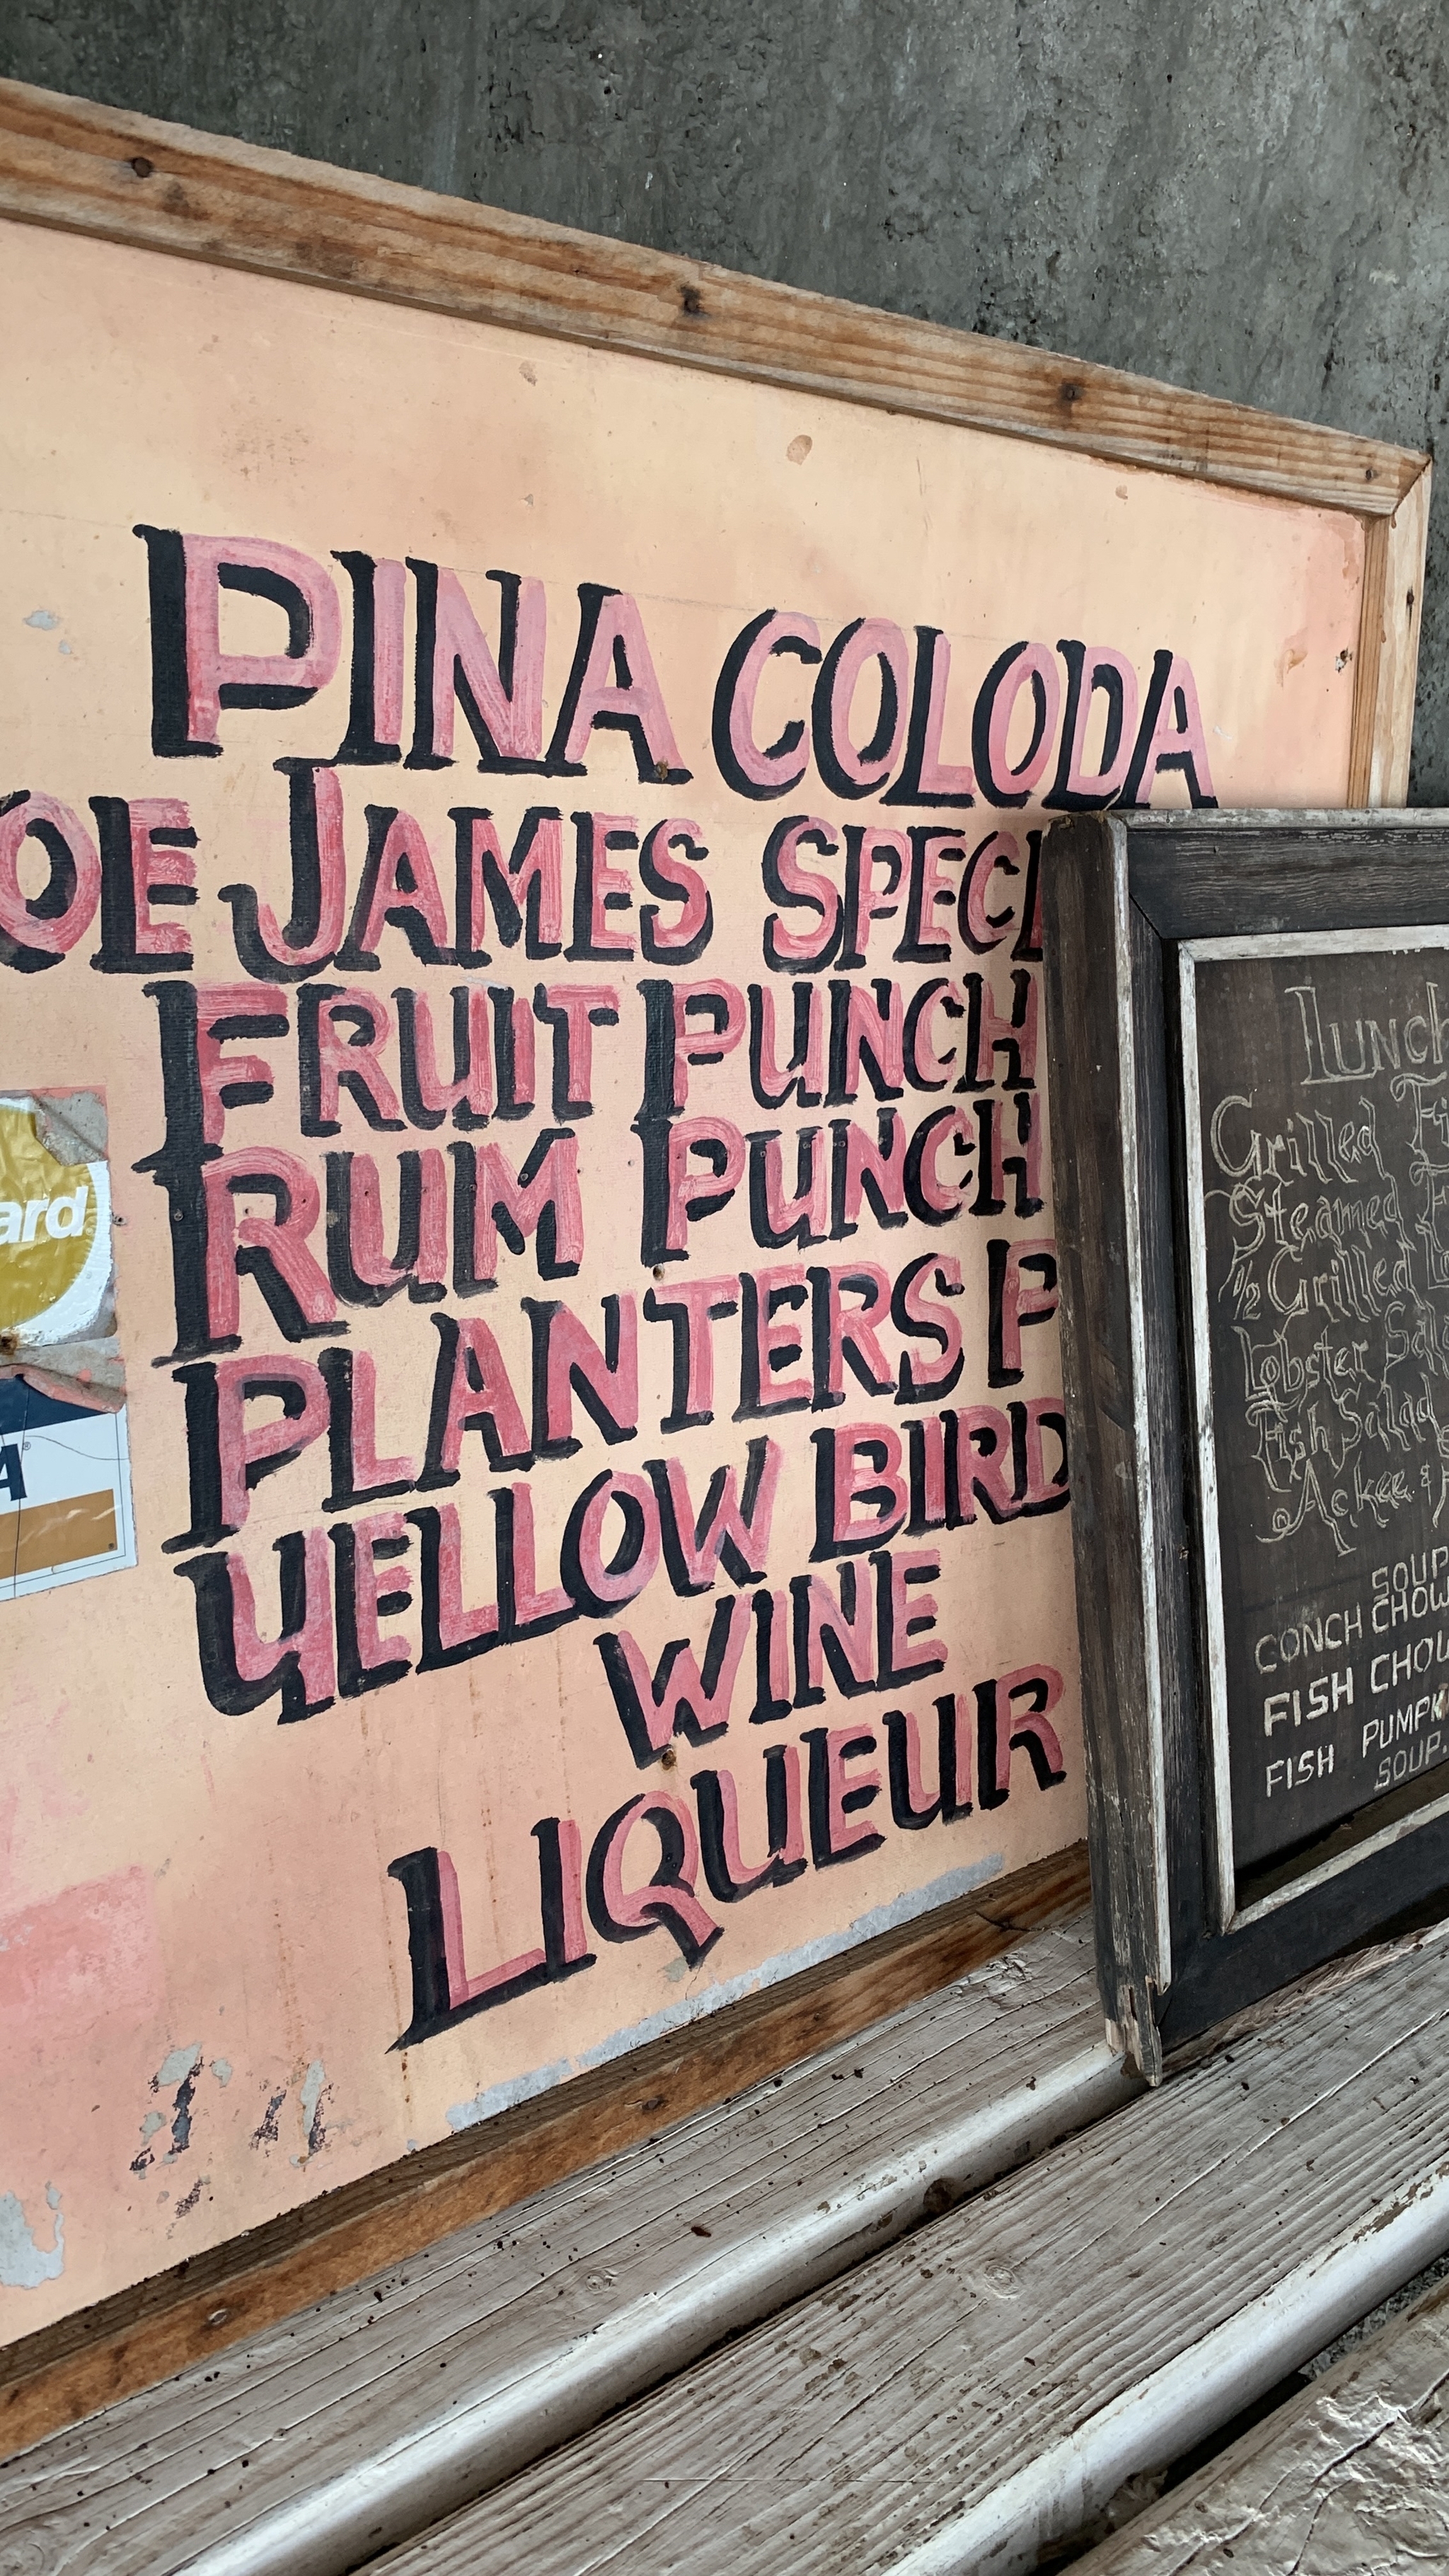 PINA COLODA
OE JAMES SPECI
FRUIT PUNCH
RUM PUNCH
PLANTERS P
YELLOW BIRD
WINE
LIQUEUR
ard
A
LUNCH
Grilled
Steamed
1/2 Grilled
Lobster Sal
Fish Salad
Ackee &
SOUP
CONCH CHOW
FISH CHOW
FISH PUMPK
SOUP.